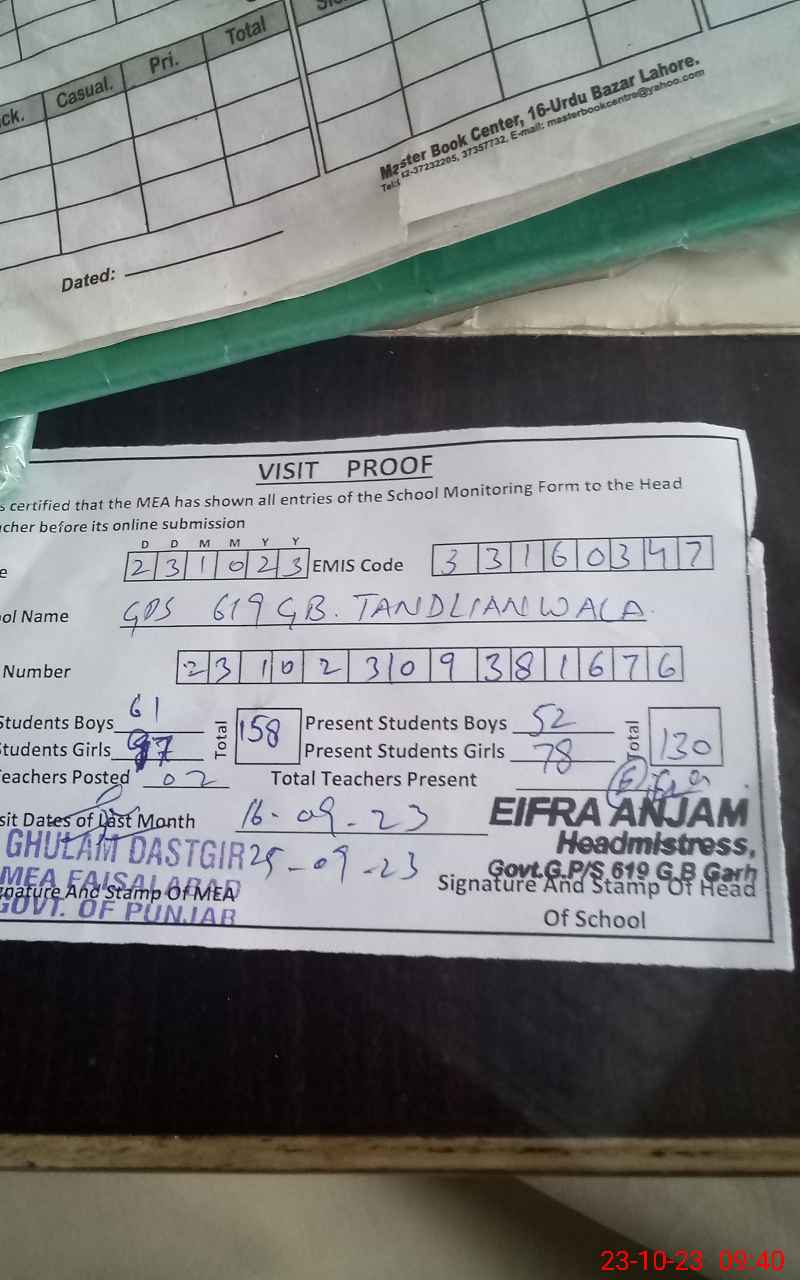 ck. Casual. Pri. Total
Master Book Center, 16-Urdu Bazar Lahore.
37232205, 37357732, E-mail: masterbookcentre@yahoo.com
Dated:
VISIT PROOF
s certified that the MEA has shown all entries of the School Monitoring Form to the Head
cher before its online submission
D D M M Y Y
e 2 3 1 0 2 3 EMIS Code 3 3 1 6 0 3 4 7
ol Name GPS 619 GB. TANDLIANWALA.
Number 2 3 1 0 2 3 0 9 3 8 1 6 7 6
Students Boys 61 Total 158 Present Students Boys 52 Total 130
Students Girls 97 Present Students Girls 78
eachers Posted 02 Total Teachers Present
sit Dates of Last Month 16-09-23
25-09-23
GHULAM DASTGIR
MEA FAISALABAD
GOVT. OF PUNJAB
gnature And Stamp Of MEA
EIFRA ANJAM
Headmistress,
Govt.G.P/S 619 G.B Garh
Signature And Stamp Of Head
Of School
23-10-23 09:40